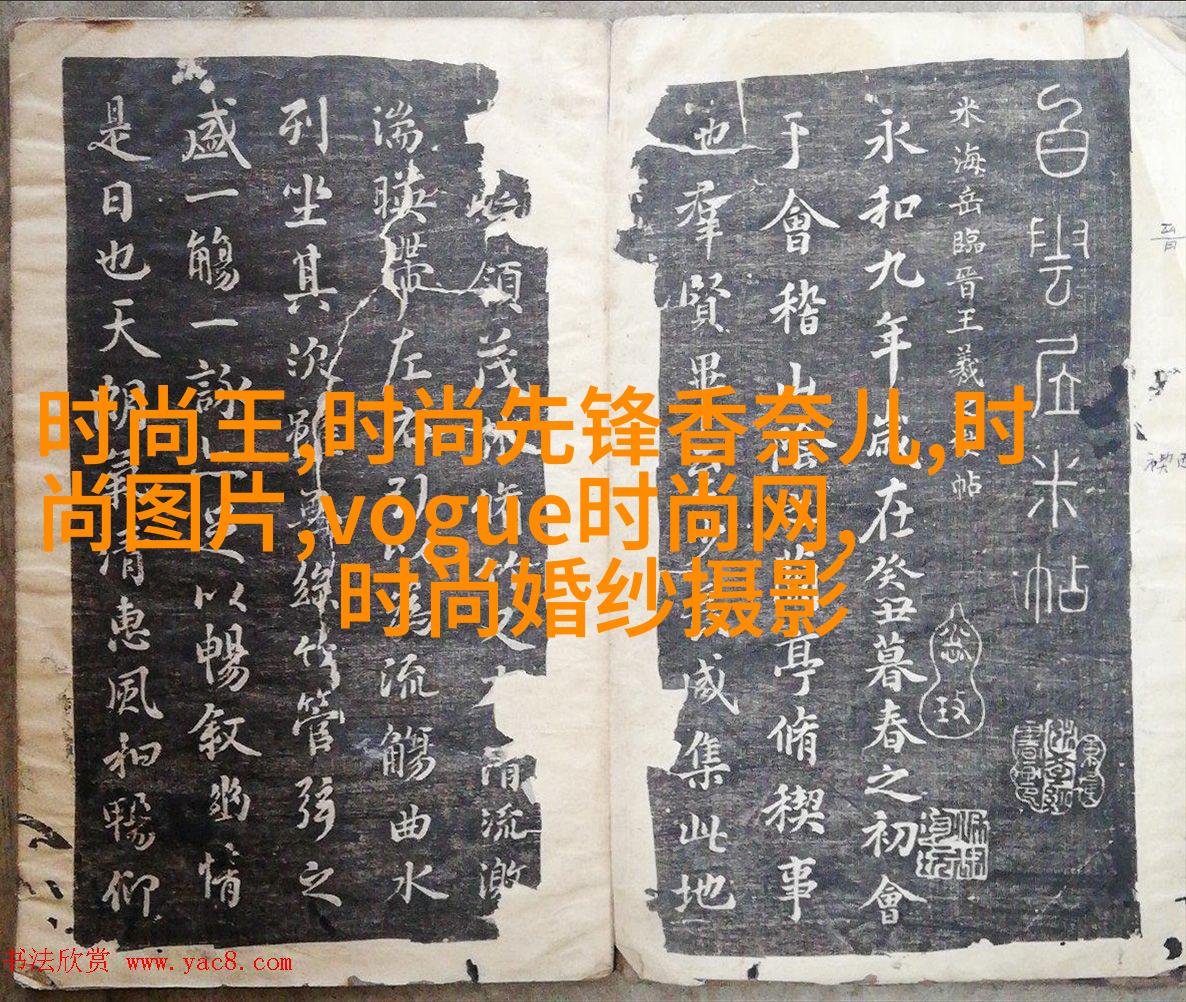 白雲居米帖
米海岳臨晉王羲之禊帖
永和九年歲在癸丑暮春之初會
于會稽山陰蘭亭脩稧事
也羣賢畢至少長咸集此地
領茂林修竹又有清流激
湍暎帶左右引以為流觴曲水
列坐其次雖無絲竹管弦之
盛一觴一詠亦足以暢敘幽情
是日也天朗氣清惠風和暢仰
时尚王,时尚先锋香奈儿,时
尚图片,vogue时尚网,
时尚婚纱摄影
书法欣赏 www.yac8.com